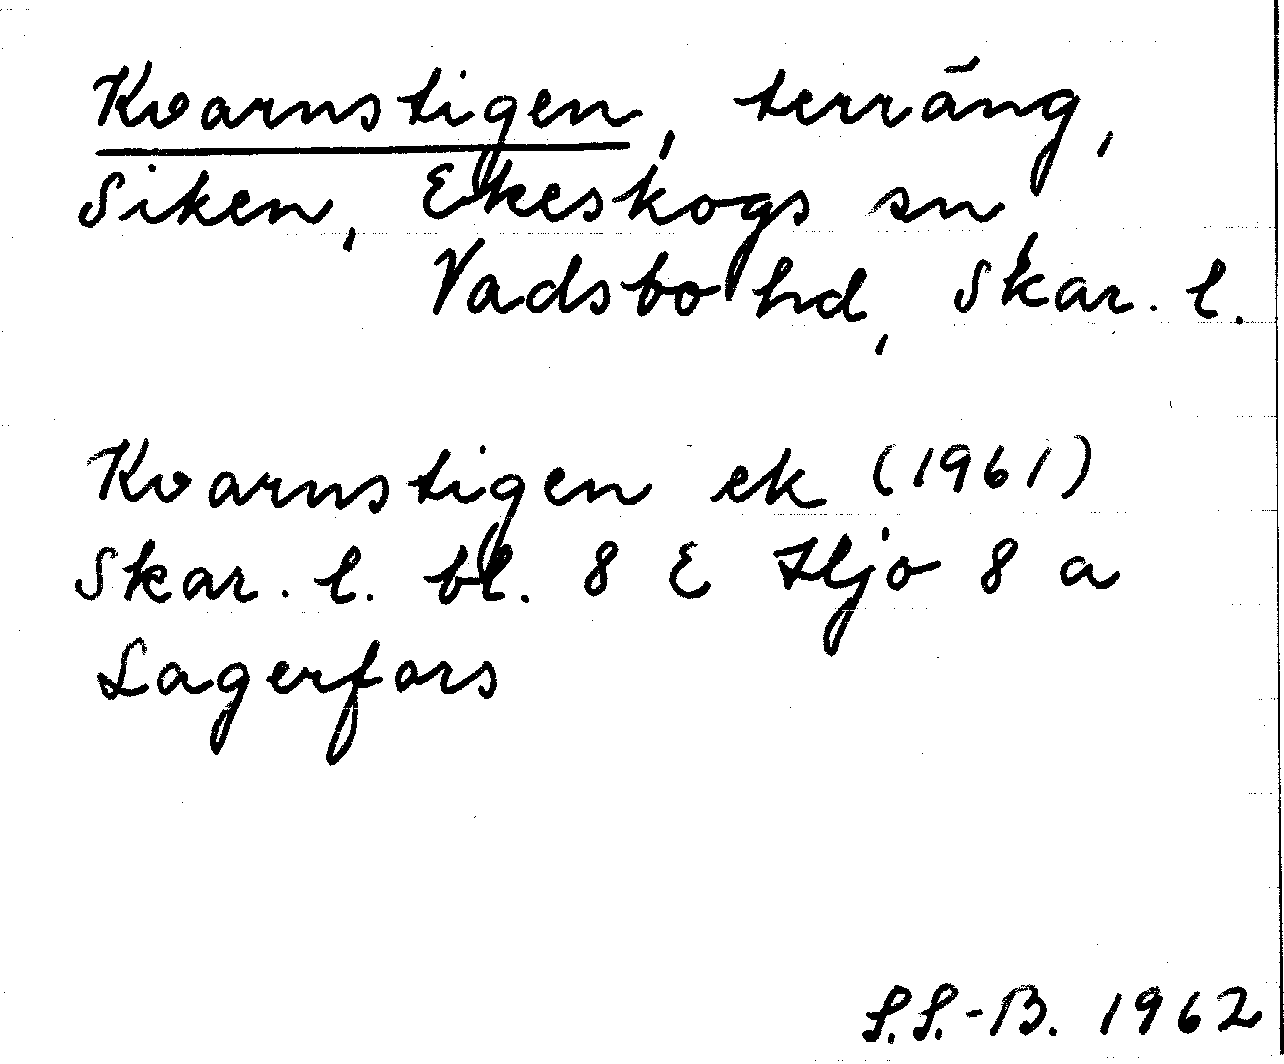 Kvarnstigen, terräng,
Siken, Ekeskogs sn,
Vadsbo hd, Skar. l.
Kvarnstigen ek (1961)
Skar. l. bl. 8 E Hjo 8 a
Lagerfors
S.S.-B. 1962